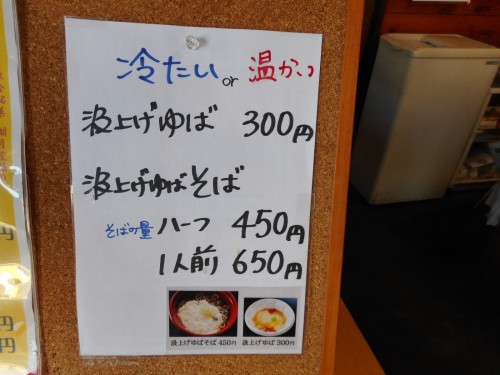 冷たい or 温かい
汲上げゆば 300円
汲上げゆばそば
そばの量 ハーフ 450円
1人前 650円
汲上げゆばそば 450円
汲上げゆば 300円
円
円
円